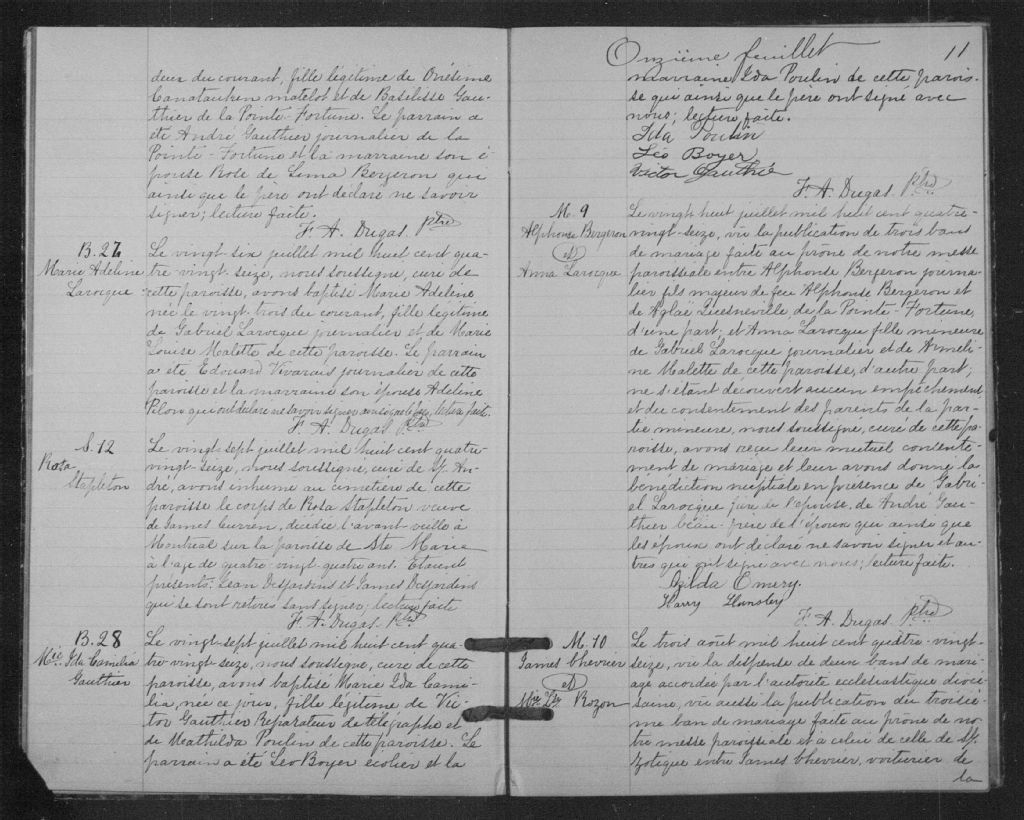 deux du courant, fille légitime de Onésime
matelot et de Basilisse Gau-
thier de la Pointe-Fortune. Le parrain a
été André Gauthier journalier de la
Pointe-Fortune et la marraine son é-
pouse Rose de Lima Bergeron qui
ainsi que le père ont déclaré ne savoir
signer; lecture faite.
F. A. Dugas Ptre
B. 27
Marie Adeline
Larocque
Le vingt-six juillet mil huit cent qua-
tre-vingt-seize, nous soussigné, curé de
cette paroisse, avons baptisé Marie Adeline
née le vingt-trois du courant, fille légitime
de Gabriel Larocque journalier et de Marie
Louise Malette de cette paroisse. Le parrain
a été Edouard Vivarais journalier de cette
paroisse et la marraine son épouse Adeline
Pilon qui ont déclaré ne savoir signer ainsi que le père, lecture faite.
F. A. Dugas Ptre
S. 12
Rosa
Stapleton
Le vingt-sept juillet mil huit cent quatre-
vingt-seize, nous soussigné, curé de St. An-
dré, avons inhumé au cimetière de cette
paroisse le corps de Rosa Stapleton veuve
de James Curren, décédée l'avant-veille à
Montréal sur la paroisse de Ste Marie
à l'age de quatre-vingt-quatre ans. Etaient
présents: Léan Desjardins et James Desjardins
qui se sont retirés sans signer, lecture faite
F. A. Dugas Ptre
B. 28
Mie. Ida Camélia
Gauthier
Le vingt-sept juillet mil huit cent qua-
tre-vingt-seize, nous soussigné, curé de cette
paroisse, avons baptisé Marie Ida Camé-
lia, née ce jour, fille légitime de Vic-
tor Gauthier Réparateur de télégraphe et
de Mathilda Poulin de cette paroisse. Le
parrain a été Léo Boyer écolier et la
Onzième feuillet 11
marraine Ida Poulin de cette parois-
se qui ainsi que le père ont signé avec
nous; lecture faite.
Ida Poulin
Léo Boyer
Victor Gauthié
F. A. Dugas Ptre
M. 9
Alphonse Bergeron
et
Anna Larocque
Le vingt-huit juillet mil huit cent quatre-
vingt-seize, vu la publication de trois bans
de mariage faite au prône de notre messe
paroissiale entre Alphonse Bergeron journa-
lier fils majeur de feu Alphonse Bergeron et
de Aglaé de la Pointe-Fortune,
d'une part; et Anna Larocque fille mineure
de Gabriel Larocque journalier et de Armeli-
ne Malette de cette paroisse, d'autre part;
ne s'étant découvert aucun empêchement
et du consentement des parents de la par-
tie mineure, nous soussigné, curé de cette pa-
roisse, avons reçu leur mutuel consente-
ment de mariage et leur avons donné la
bénédiction nuptiale en présence de Gabri-
el Larocque père de l'épouse, de André Gau-
thier beau-frère de l'époux qui ainsi que
les époux ont déclaré ne savoir signer et au-
tres qui ont signé avec nous; lecture faite.
Ogilda Emery.
Harry Hansley
F. A. Dugas Ptre
M. 10
James Chevrier
et
Rozon
Le trois août mil huit cent quatre-vingt-
seize, vu la dispense de deux bans de mari-
age accordée par l'autorité ecclésiastique diocé-
saine, vu aussi la publication du troisiè-
me ban de mariage faite au prône de no-
tre messe paroissiale et à celui de celle de St.
Zotique entre James Chevrier, voiturier de
la